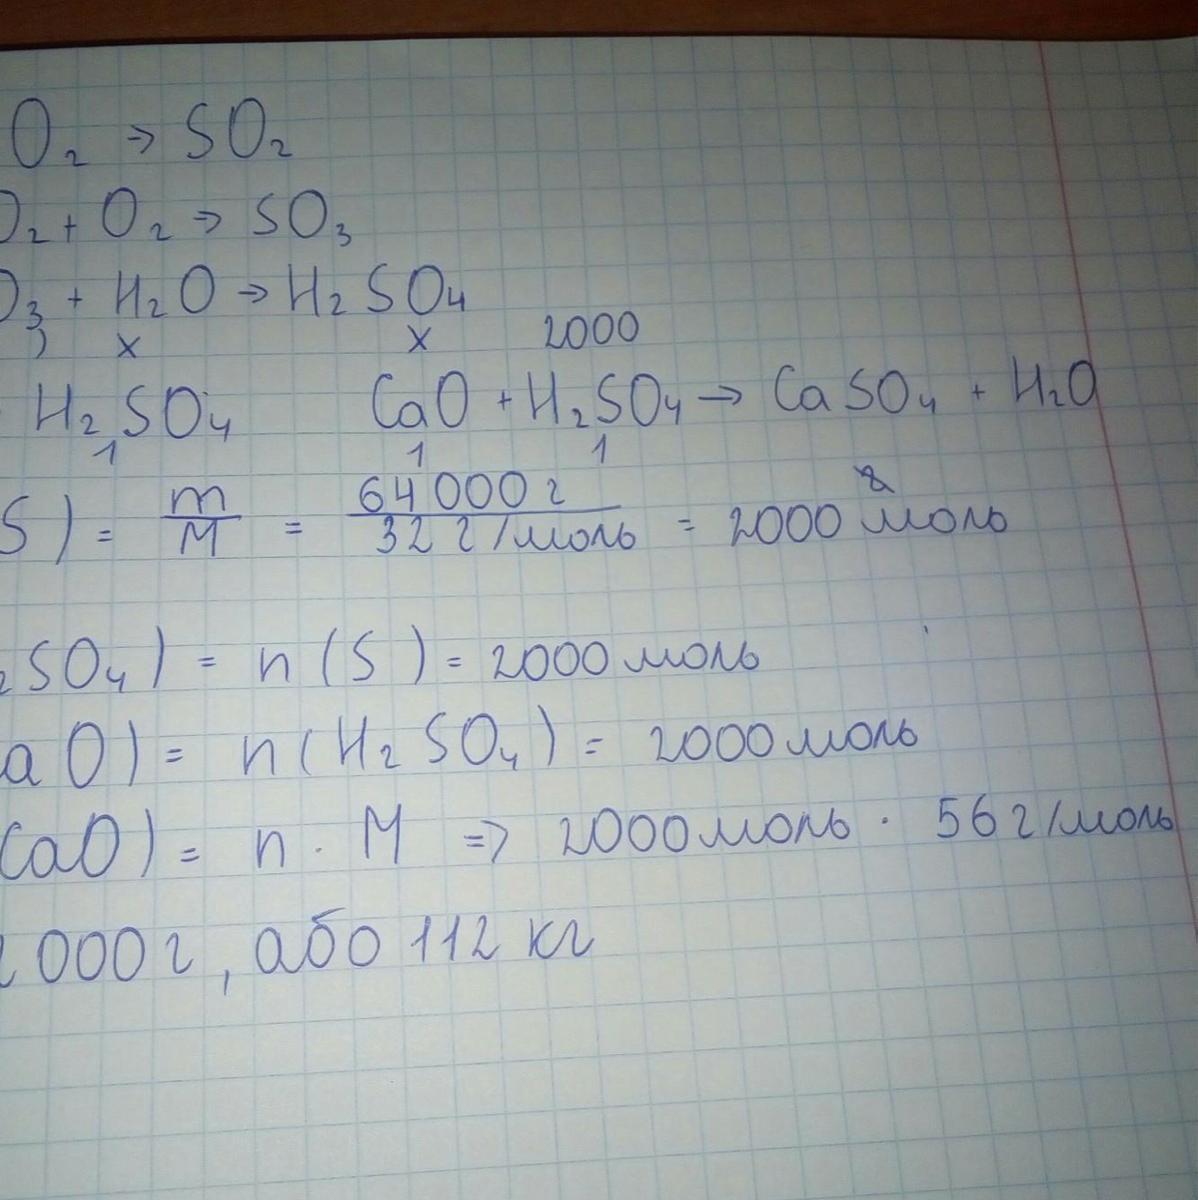 O₂ → SO₂
O₂ + O₂ ⇒ SO₃
O₃ + H₂O → H₂SO₄
x x 2000
H₂SO₄ CaO + H₂SO₄ → CaSO₄ + H₂O
1 1 1
S) = m/M = 64000 г / 32 г/моль = 2000 моль
₂SO₄) = n(S) = 2000 моль
aO) = n(H₂SO₄) = 2000 моль
CaO) = n · M ⇒ 2000 моль · 56 г/моль
000 г, або 112 кг